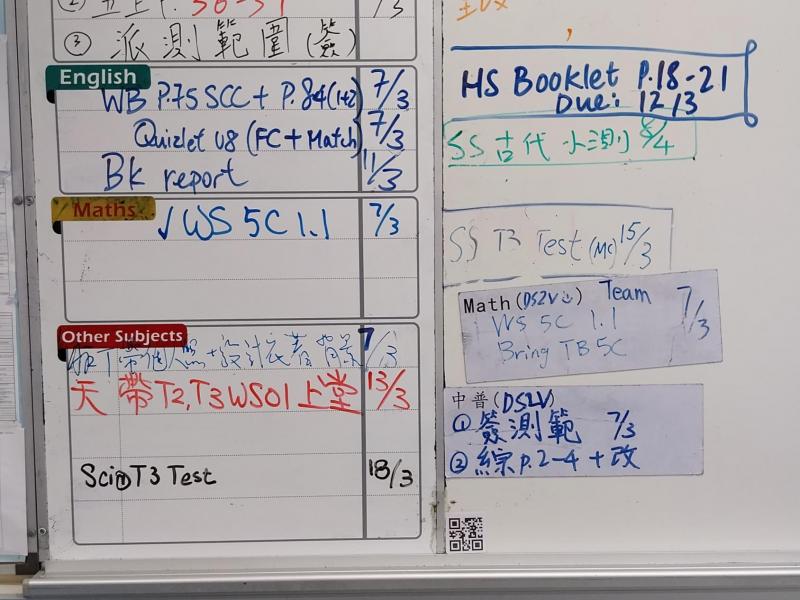 ③ 派測範圍(簽)
English
WB P.75 SCC + P.84(1+2) 7/3
Quizlet U8 (FC + Match) 7/3
Bk report 11/3
Maths
√ WS 5C 1.1 7/3
Other Subjects
7/3
天 帶T2,T3 WS01 上堂 13/3
Sci T3 Test 18/3
HS Booklet P.18-21
Due: 12/3
SS 古代 小測 8/4
SS T3 Test (MC) 15/3
Math (DS2V) Team 7/3
WS 5C 1.1
Bring TB 5C
中普 (DS2V)
① 簽測範 7/3
② 綜 p.2-4 + 改